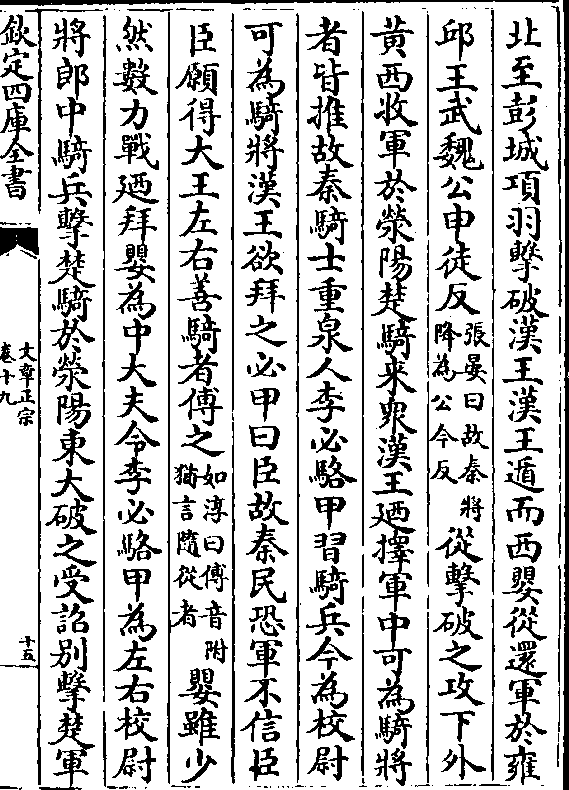 北至彭城項羽擊破漢王漢王遁而西嬰從還軍於雍
邱王武魏公申徒反張晏曰故秦將降為公今反從擊破之攻下外
黃西收軍於滎陽楚騎来衆漢王廼擇軍中可為騎將
者皆推故秦騎士重泉人李必駱甲習騎兵今為校尉
可為騎將漢王欲拜之必甲曰臣故秦民恐軍不信臣
臣願得大王左右善騎者傅之如淳曰傅音附猶言隨從者嬰雖少
然數力戰廼拜嬰為中大夫令李必駱甲為左右校尉
將郎中騎兵擊楚騎於滎陽東大破之受詔別擊楚軍
欽定四庫全書
文章正宗
卷十九
十五